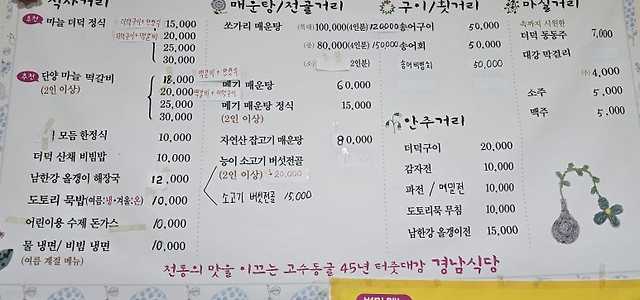 식사거리
추천 마늘 더덕 정식 15,000
20,000
25,000
30,000
추천 단양 마늘 떡갈비 18,000
(2인 이상) 20,000
25,000
30,000
모듬 한정식 10,000
더덕 산채 비빔밥 10,000
남한강 올갱이 해장국 12,000
도토리 묵밥(여름:냉•겨울:온) 10,000
어린이용 수제 돈가스 10,000
물 냉면/ 비빔 냉면 10,000
(여름 계절 메뉴)
매운탕/전골거리
쏘가리 매운탕 (특대) 100,000(4인분) 120000
(중) 80,000(4인분) 150000
(소) 2인분)
메기 매운탕 60,000
메기 매운탕 정식 15,000
(2인 이상)
자연산 잡고기 매운탕 80,000
능이 소고기 버섯전골
(2인 이상) 20,000
소고기 버섯전골 15,000
구이/횟거리
송어구이 50,000
송어회 50,000
송어비빔회 50,000
안주거리
더덕구이 20,000
감자전 10,000
파전 / 메밀전 10,000
도토리묵 무침 10,000
남한강 올갱이전 15,000
마실거리
속까지 시원한
더덕 동동주 7,000
대강 막걸리
(주) 4,000
소주 5,000
맥주 5,000
전통의 맛을 이끄는 고수동굴 45년 터줏대감 경남식당